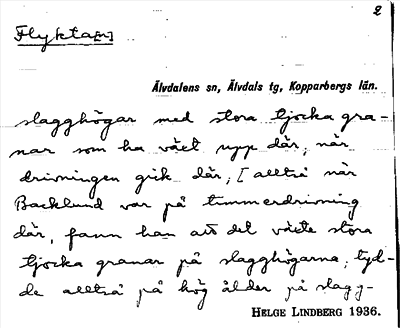 2
Flykta[n]
Älvdalens sn, Älvdals tg, Kopparbergs län.
slagghögar med stora tjocka gra-
nar som ha växt upp där, när
drivningen gick där, [allttså när
Backlund var på timmerdrivning
där, fann han att det växte stora
tjocka granar på slagghögarna, tyd-
de allttså på hög ålder på slagg-
HELGE LINDBERG 1936.